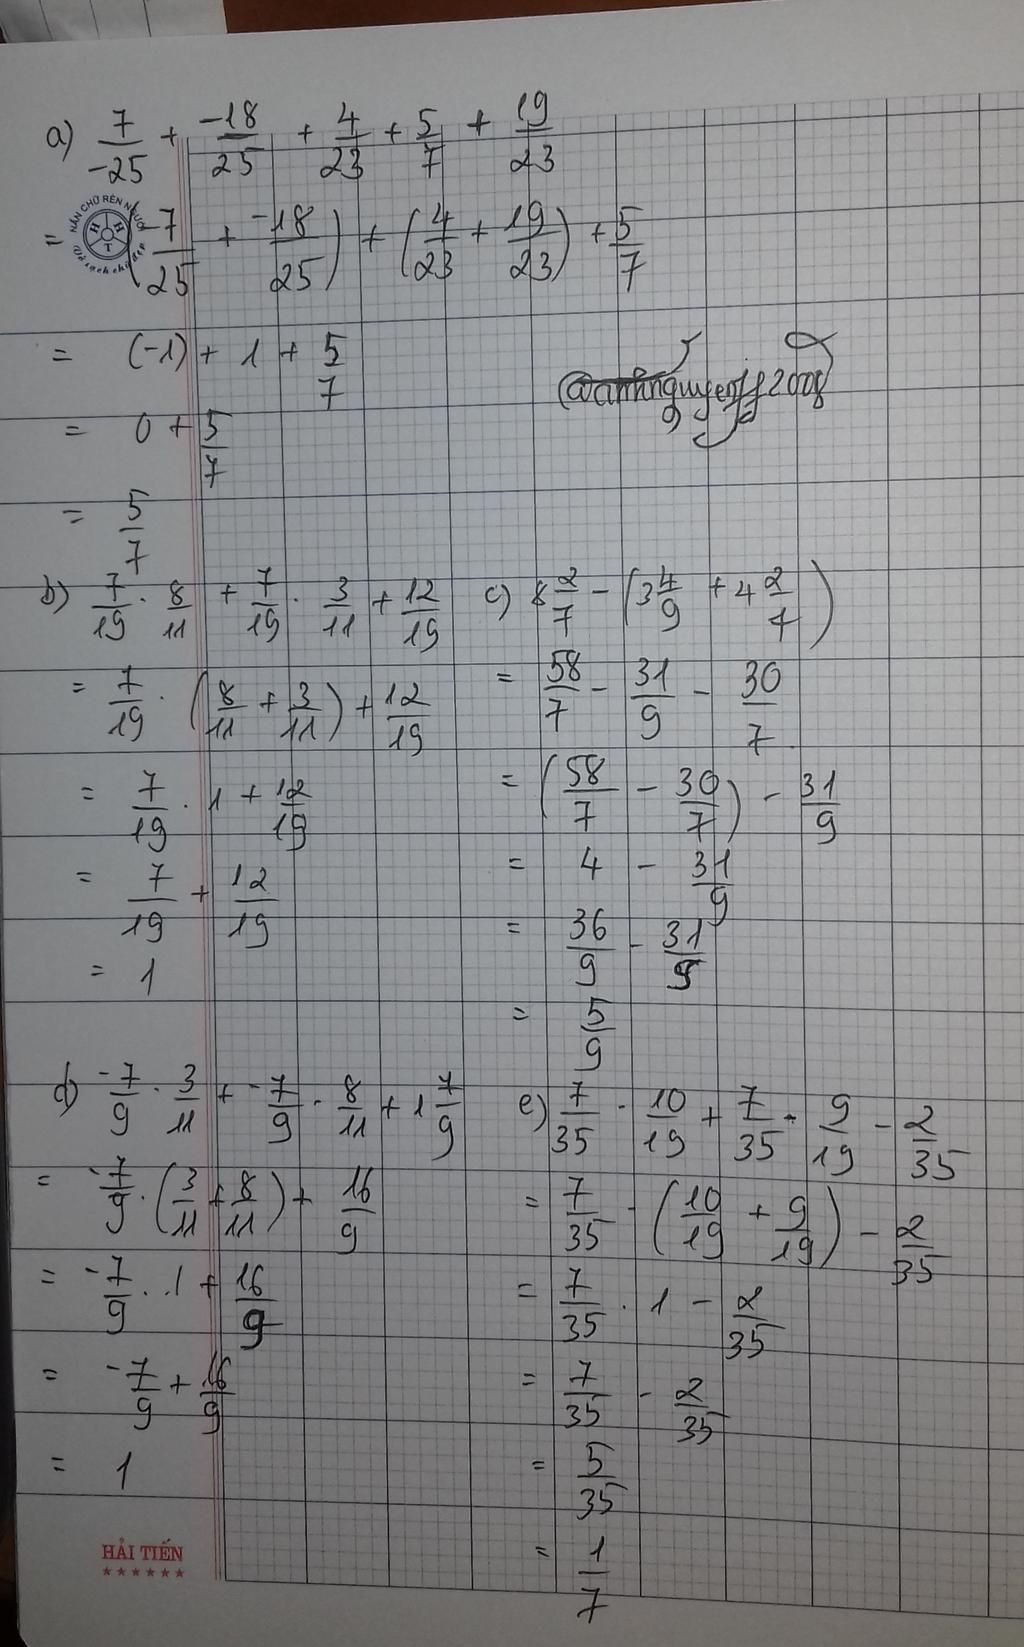 a) 7/-25 + -18/25 + 4/23 + 5/7 + 19/23
NẮN CHỮ RÈN NGƯỜI
H H T
Vở sạch chữ đẹp
= (-7/25 + -18/25) + (4/23 + 19/23) + 5/7
= (-1) + 1 + 5/7
= 0 + 5/7
= 5/7
b) 7/19 . 8/11 + 7/19 . 3/11 + 12/19
= 7/19 . (8/11 + 3/11) + 12/19
= 7/19 . 1 + 12/19
= 7/19 + 12/19
= 1
c) 8 2/7 - (3 4/9 + 4 2/7)
= 58/7 - 31/9 - 30/7
= (58/7 - 30/7) - 31/9
= 4 - 31/9
= 36/9 - 31/9
= 5/9
d) -7/9 . 3/11 + -7/9 . 8/11 + 1 7/9
= -7/9 . (3/11 + 8/11) + 16/9
= -7/9 . 1 + 16/9
= -7/9 + 16/9
= 1
e) 7/35 . 10/19 + 7/35 . 9/19 - 2/35
= 7/35 . (10/19 + 9/19) - 2/35
= 7/35 . 1 - 2/35
= 7/35 - 2/35
= 5/35
= 1/7
HẢI TIẾN